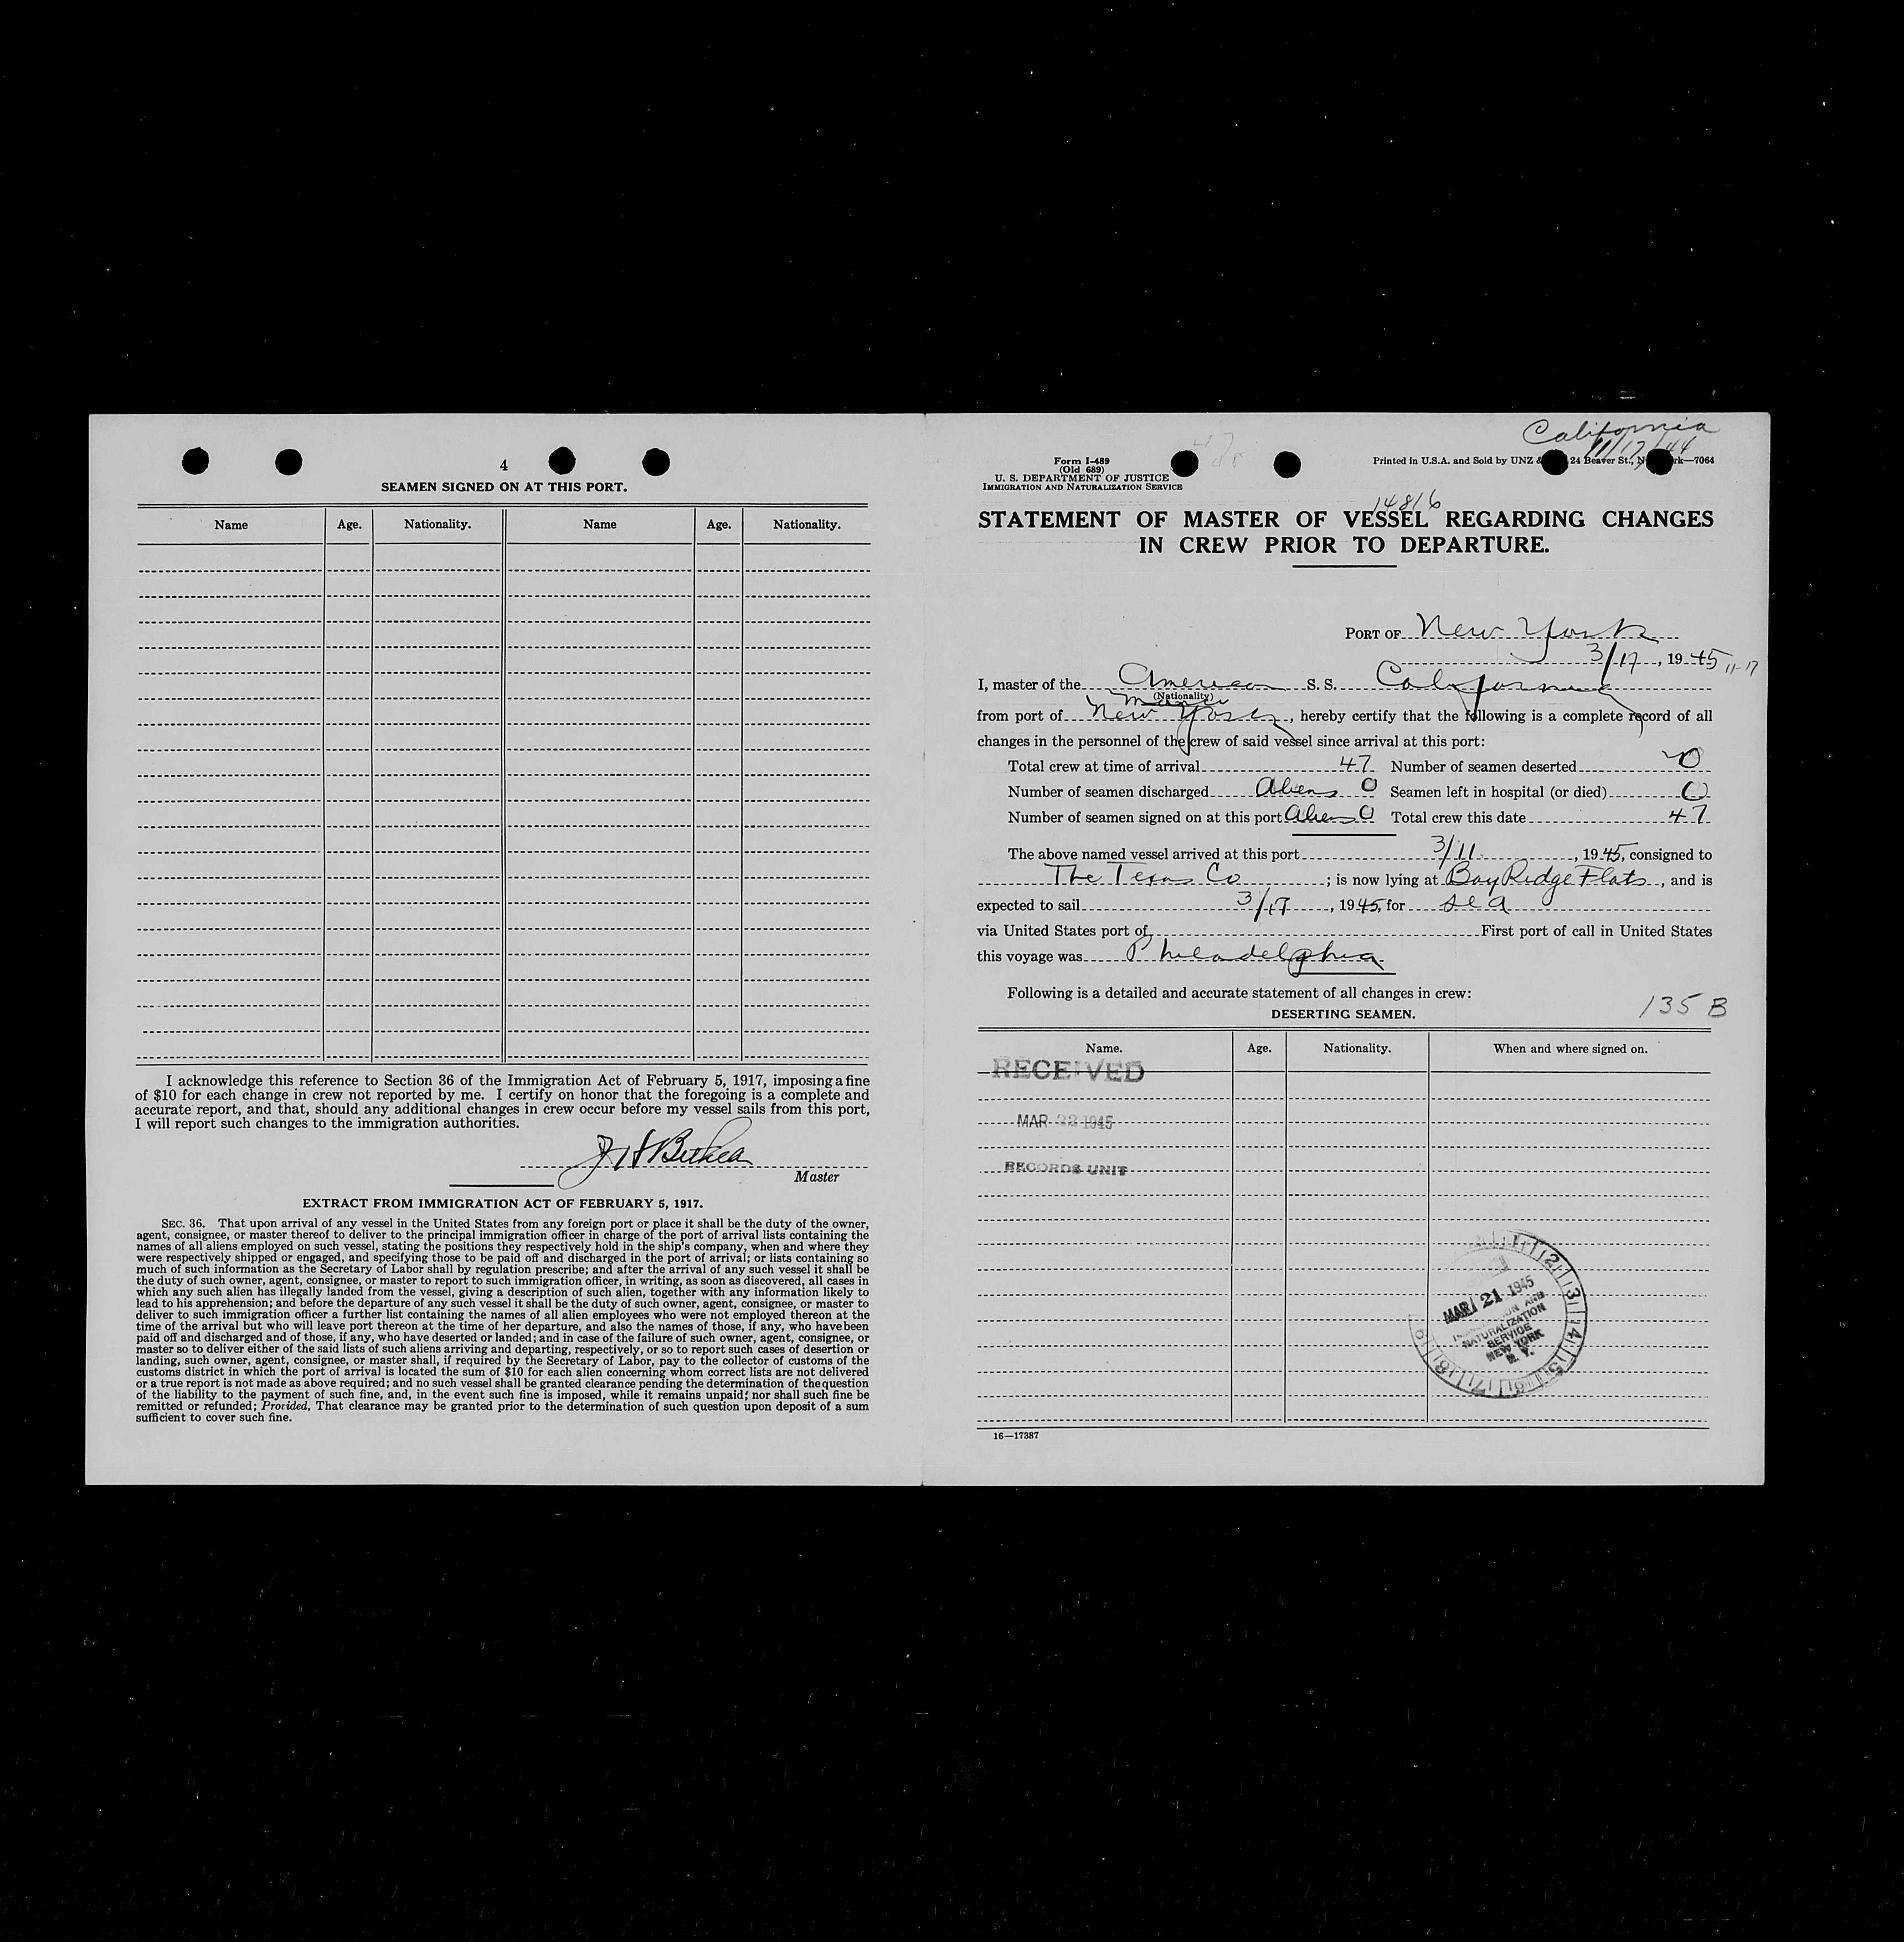 4
SEAMEN SIGNED ON AT THIS PORT.
Name Age. Nationality. Name Age. Nationality.
I acknowledge this reference to Section 36 of the Immigration Act of February 5, 1917, imposing a fine
of $10 for each change in crew not reported by me. I certify on honor that the foregoing is a complete and
accurate report, and that, should any additional changes in crew occur before my vessel sails from this port,
I will report such changes to the immigration authorities.
Master
EXTRACT FROM IMMIGRATION ACT OF FEBRUARY 5, 1917.
SEC. 36. That upon arrival of any vessel in the United States from any foreign port or place it shall be the duty of the owner,
agent, consignee, or master thereof to deliver to the principal immigration officer in charge of the port of arrival lists containing the
names of all aliens employed on such vessel, stating the positions they respectively hold in the ship's company, when and where they
were respectively shipped or engaged, and specifying those to be paid off and discharged in the port of arrival; or lists containing so
much of such information as the Secretary of Labor shall by regulation prescribe; and after the arrival of any such vessel it shall be
the duty of such owner, agent, consignee, or master to report to such immigration officer, in writing, as soon as discovered, all cases in
which any such alien has illegally landed from the vessel, giving a description of such alien, together with any information likely to
lead to his apprehension; and before the departure of any such vessel it shall be the duty of such owner, agent, consignee, or master to
deliver to such immigration officer a further list containing the names of all alien employees who were not employed thereon at the
time of the arrival but who will leave port thereon at the time of her departure, and also the names of those, if any, who have been
paid off and discharged and of those, if any, who have deserted or landed; and in case of the failure of such owner, agent, consignee, or
master so to deliver either of the said lists of such aliens arriving and departing, respectively, or so to report such cases of desertion or
landing, such owner, agent, consignee, or master shall, if required by the Secretary of Labor, pay to the collector of customs of the
customs district in which the port of arrival is located the sum of $10 for each alien concerning whom correct lists are not delivered
or a true report is not made as above required; and no such vessel shall be granted clearance pending the determination of the question
of the liability to the payment of such fine, and, in the event such fine is imposed, while it remains unpaid; nor shall such fine be
remitted or refunded; Provided, That clearance may be granted prior to the determination of such question upon deposit of a sum
sufficient to cover such fine.
California
11/17/44
Form I-489
(Old 689)
U. S. DEPARTMENT OF JUSTICE
IMMIGRATION AND NATURALIZATION SERVICE
Printed in U.S.A. and Sold by UNZ & 24 Beaver St., N rk—7064
14816
STATEMENT OF MASTER OF VESSEL REGARDING CHANGES
IN CREW PRIOR TO DEPARTURE.
PORT OF New York
3/17, 1945 11-17
I, master of the American S. S. California
(Nationality)
from port of New York, hereby certify that the following is a complete record of all
changes in the personnel of the crew of said vessel since arrival at this port:
Total crew at time of arrival 47 Number of seamen deserted 0
Number of seamen discharged Aliens 0 Seamen left in hospital (or died) 0
Number of seamen signed on at this port Aliens 0 Total crew this date 47
The above named vessel arrived at this port 3/11, 1945, consigned to
The Texas Co; is now lying at Bay Ridge Flats, and is
expected to sail 3/17, 1945, for sea
via United States port of First port of call in United States
this voyage was Philadelphia
Following is a detailed and accurate statement of all changes in crew:
135 B
DESERTING SEAMEN.
Name. Age. Nationality. When and where signed on.
RECEIVED
MAR 22 1945
RECORDS UNIT
MAR 21 1945
IMMIGRATION AND
NATURALIZATION
SERVICE
NEW YORK
N. Y.
16—17387